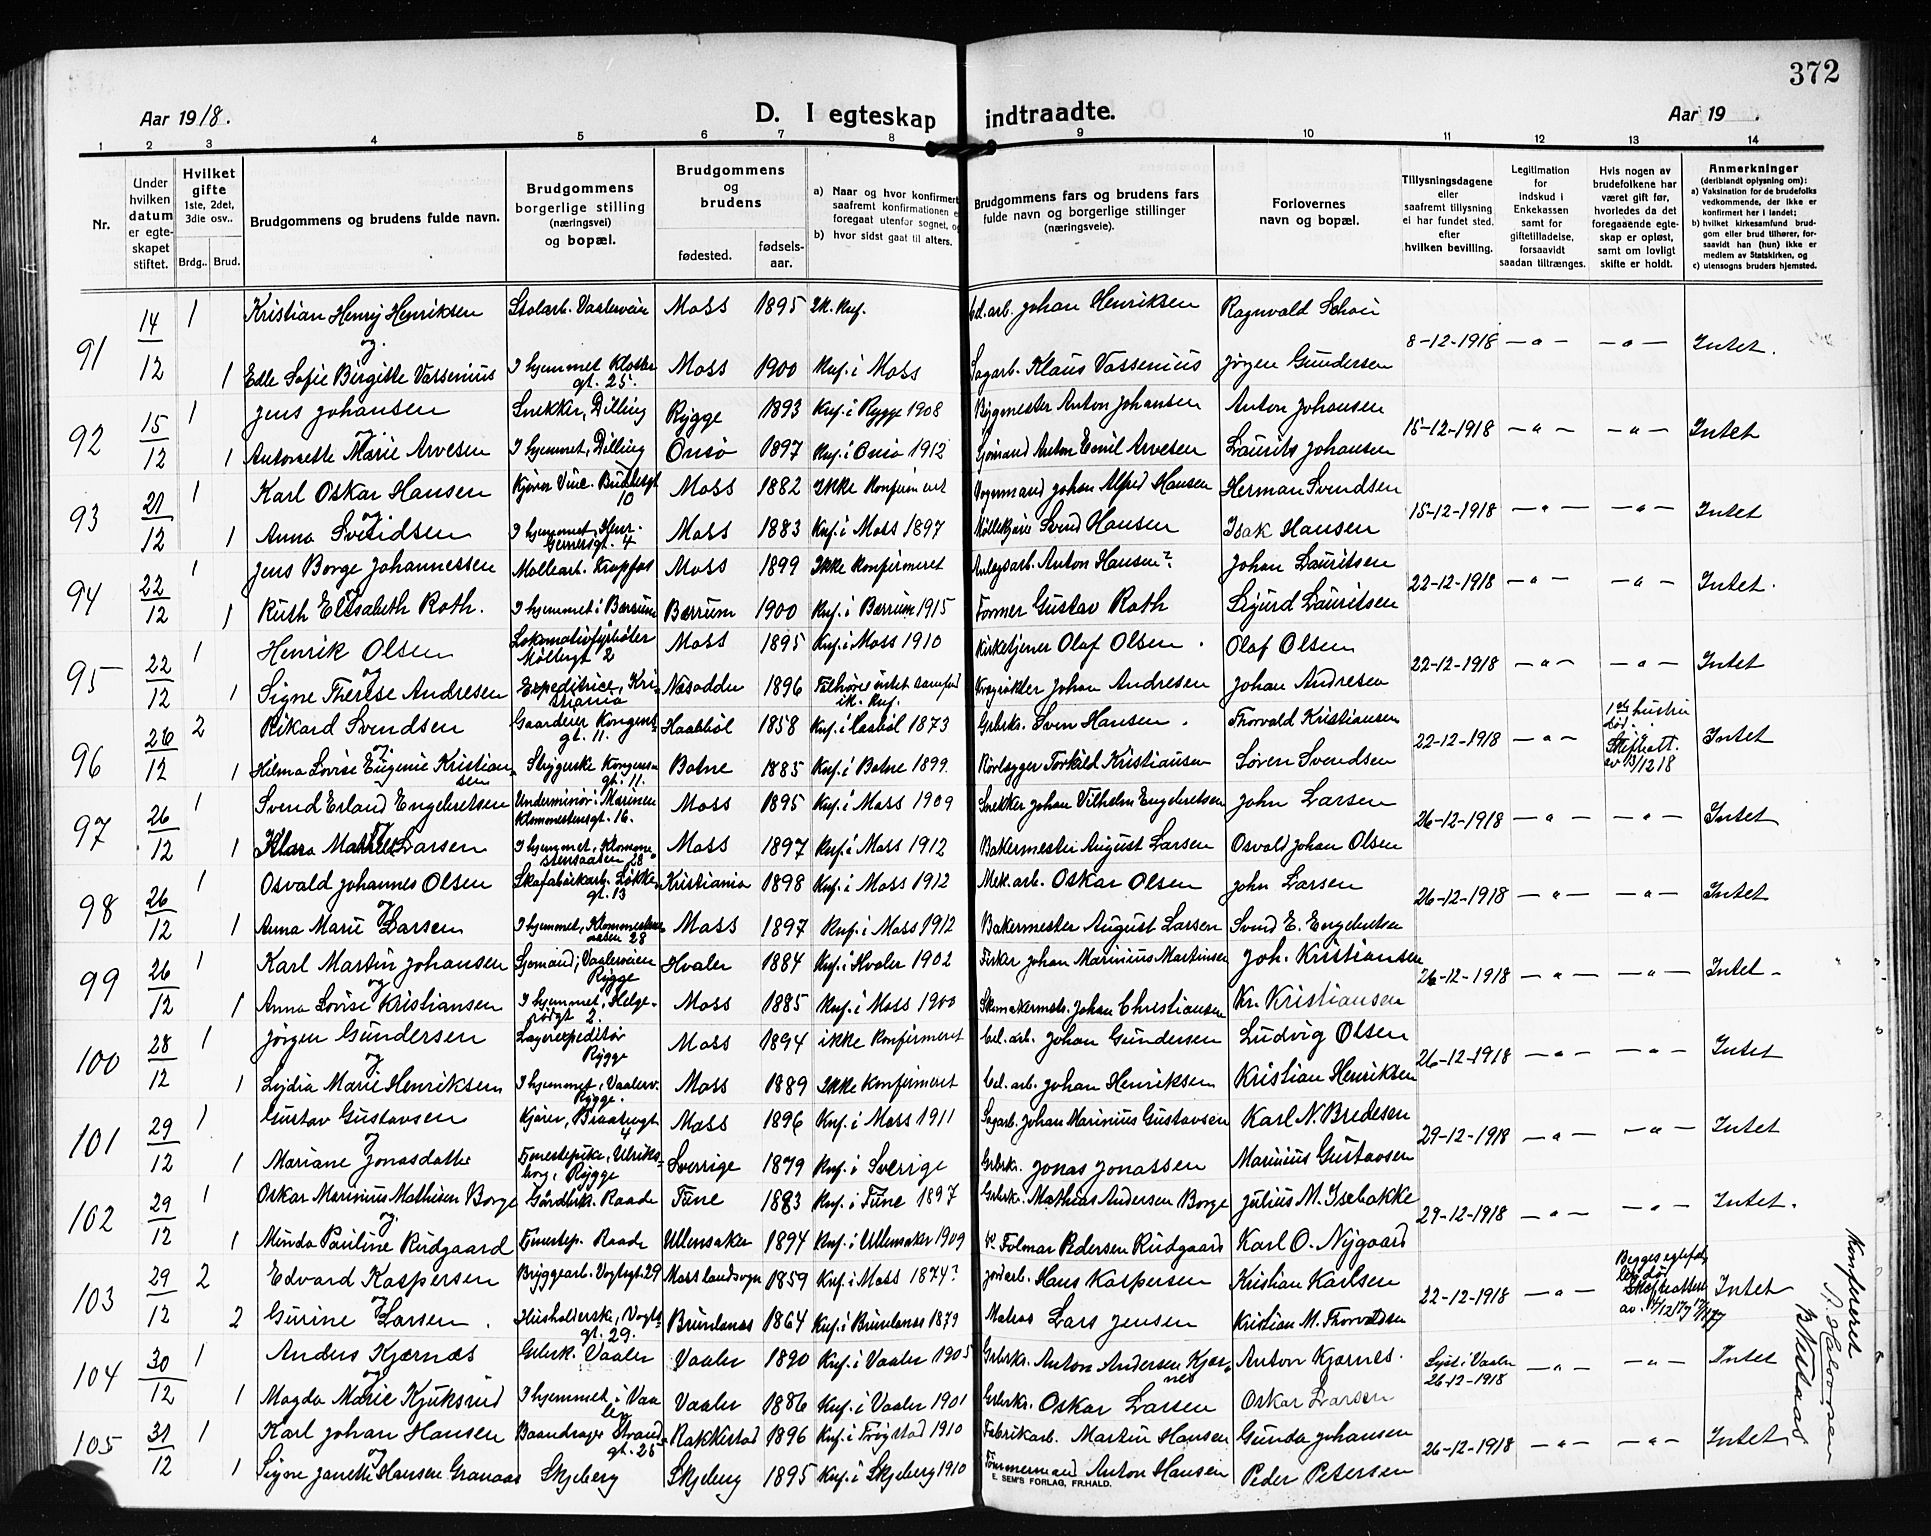 372
Aar 1918. D. I egteskap indtraadte. Aar 19
1 2 3 4 5 6 7 8 9 10 11 12 13 14
Nr.
Under hvilken datum er egteskapet stiftet.
Hvilket gifte 1ste, 2det, 3die osv..
Brdg.. Brud.
Brudgommens og brudens fulde navn.
Brudgommens borgerlige stilling (næringsvei) og bopæl.
Brudgommens og brudens
fødested. fødsels-aar.
a) Naar og hvor konfirmert
saafremt konfirmationen e
foregaat utenfor sognet, og
b) hvor sidst gaat til alters.
Brudgommens fars og brudens fars fulde navn og borgerlige stillinger (næringsveie).
Forlovernes navn og bopæl.
Tillysningsdagene eller saafremt tillysning ei har fundet sted. efter hvilken bevilling.
Legitimation for indskud i Enkekassen samt for giftetilladelse, forsaavidt saadan tiltrænges.
Hvis nogen av brudefolkene har været gift før, hvorledes da det foregaaende egteskap er opløst, samt om lovligt skifte er holdt.
Anmerkninger
(deriblandt oplysning om):
a) Vaksination for de brudefolks vedkommende, der ikke er konfirmert her i landet;
b) hvilket kirkesamfund brudgom eller brud tilhører, forsaavidt han (hun) ikke er medlem av Statskirken, og
c) utensogns bruders hjemsted.
91 14/12 1 Kristian Henry Henriksen Stolarb. Vaalerveien Moss 1895 Ik. knf. bd. arb. Johan Henriksen Ragnvald Schou 8-12-1918 — " — — " — Intet.
og
1 Edle Sofie Birgitte Vassenius I hjemmet Kloster gt. 25. Moss 1900 Knf. i Moss Sagarb. Klaus Vassenius Jørgen Gundersen
92 15/12 1 Jens Johansen Snekker, Dilling Rygge 1893 Knf. i Rygge 1908 Bygmester Anton Johansen Anton Johansen 15-12-1918 — " — — " — Intet
og
1 Antonette Marie Arvesen I hjemmet, Dilling Onsø 1897 Knf. i Onsø 1912 Sjømand Anton Emil Arvesen Laurits Johansen
93 21/12 1 Karl Oskar Hansen Kjører 10 Moss 1882 Ikke konfirmert Vognmand Johan Alfred Hansen Herman Svendsen 15-12-1918 — " — — " — Intet
og
1 Anna Svendsen I hjemmet, Henr. Gernersgt. 4 Moss 1883 Knf. i Moss 1897 Svend Hansen Isak Hansen
94 22/12 1 Jens Borge Johannessen Møllearb. Krapfos Moss 1899 Ikke konfirmeret Anlegsarb. Anton Hansen? Johan Lauritsen 22-12-1918 — " — — " — Intet.
1 Ruth Elisabeth Roth. I hjemmet i Bærum Bærum 1900 Knf. i Bærum 1915 Former Gustav Roth Sigurd Lauritsen
95 22/12 1 Henrik Olsen Lokomotivfyrbøter Møllergt 2 Moss 1895 Knf. i Moss 1910 Kirketjener Olaf Olsen. Olaf Olsen 22-12-1918 — " — — " — Intet
og
1 Signe Therese Andresen Expeditrice, Kristiania Nesodden 1896 Tilhører intet samfund ik. knf. Johan Andresen Johan Andresen
96 26/12 2 Rikard Svendsen Gaardeier Kongens gt. 11. Haabøl 1858 Knf. i Haabøl 1873 Grbrkr. Sven Hansen. Thorvald Kristiansen 22-12-1918 — " — 1ste hustru død. Skifteatt. av 13/12 18 Intet
og
1 Hilma Lovise Eugenie Kristiansen Strygerske Kongens gt. 11. Botne 1885 Knf. i Botne 1899. Rørlægger Torkild Kristiansen Søren Svendsen
97 26/12 1 Svend Erland Engebretsen Underminør i Marinen Klommestensgt. 16. Moss 1895 Knf. i Moss 1909 Snekker Johan Vilhelm Engebretsen John Larsen 26-12-1918 — " — — " — Intet
og
1 Klara Larsen I hjemmet, Klommestensaasen 28 Moss 1897 Knf. i Moss 1912 Bakermester August Larsen Osvald Johan Olsen
98 26/12 1 Osvald Johannes Olsen Skofabrikarb. Løkke gt. 13 Kristiania 1898 Knf. i Moss 1912 Mek. arb. Oskar Olsen John Larsen 26-12-1918 — " — — " — Intet
og
1 Anna Marie Larsen I hjemmet, Klommestensaasen 28 Moss 1897 Knf. i Moss 1912 Bakermester August Larsen Svend E. Engebretsen
99 26/12 1 Karl Martin Johansen Sjømand, Vaalerveien Rygge Hvaler 1884 Knf. i Hvaler 1902 Fisker Johan Marinius Martinsen Joh. Kristiansen 26-12-1918 — " — — " — Intet -
og
1 Anna Lovise Kristiansen I hjemmet, Helgerødgt 2. Moss 1885 Knf. i Moss 1900 Skomakermstr. Johan Christiansen Kr. Kristiansen
100 28/12 1 Jørgen Gundersen Lagerexpeditør Rygge Moss 1894 ikke konfirmeret bd. arb. Johan Gundersen Ludvig Olsen 26-12-1918 — " — — " — Intet
og
1 Lydia Marie Henriksen I hjemmet, Vaalerv. Rygge. Moss 1889 Ikke konfirmert bd. arb. Johan Henriksen Kristian Henriksen
101 29/12 1 Gustav Gustavsen Kjører, 4 Moss 1896 Knf. i Moss 1911 Sagarb. Johan Marinius Gustavsen Karl N. Bredesen 29-12-1918 — " — — " — Intet
og
1 Mariane Jonasdatter Tjenestepike, Ulriksborg, Rygge Sverrige 1879 Knf. i Sverige Grbrkr. Jonas Jonassen Marinius Gustavsen
102 29/12 1 Oskar Marinius Mathisen Borge Gårdbrk. Raade Tune 1883 Knf. i Tune 1897 Grbrkr. Mathias Andersen Borge Julius M. Isebakke 29-12-1918 — " — — " — Intet.
og.
1 Minda Pauline Rudgaard Tjenestep. Raade Ullensaker 1894 Knf. i Ullensaker 1909 Folmar Pedersen Rudgaard Karl O. Nygaard
103 29/12 2 Edvard Kaspersen Bryggearb. Vogtsgt. 29 Moss landsogn 1859 Knf. i Moss 1874? Jordarb. Hans Kaspersen Kristian Karlsen 22-12-1918 — " — Begges egtefæller død Skifteattest av Intet
og
2 Gurine Larsen. Husholderske, Vogtsgt. 29. Brunlanes 1864 Knf. i Brunlanes 1879 Matros Lars Jensen Kristian M. Thorvaldsen
104 30/12 1 Anders Kjærnæs Grbrk. Vaaler Vaaler 1890 Knf. i Vaaler 1905 Grbrkr. Anton Andersen Kjærnes Anton Kjærnes. Lyst i Vaaler 26-12-1918 — " — — " — Intet
og
1 Magda Marie Kjuksrud I hjemmet i Vaaler Vaaler 1886 Knf. i Vaaler 1901 Grbrkr. Oskar Larsen Oskar Larsen
105 31/12 1 Karl Johan Hansen Baandrager Strandgt. 25 Rakkestad 1896 Knf. i Trøgstad 1910 Fabrikarb. Martin Hansen Gunda Johansen 26-12-1918 — " — — " — Intet
og
1 Signe Janette Hansen Granaas Skjeberg Skjeberg 1895 Knf. i Skjeberg 1910 Tømmermand Anton Hansen Peder Petersen
E. SEM'S FORLAG, FR.HALD.
Konfereret
P. Halvorsen